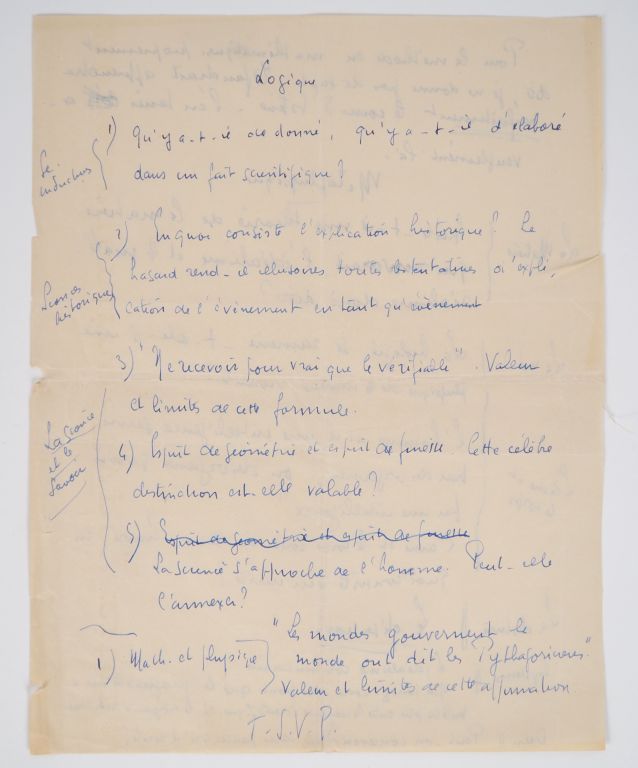 Logique
1) Qu'y a-t-il de donné, qu'y a-t-il d'élaboré
dans un fait scientifique ?
Le
inductions
2) En quoi consiste l'explication historique ? Le
hasard rend-il illusoires toutes les tentatives d'expli,
cation de l'évènement en tant qu'évènement
Sciences
historiques
3) "Ne recevoir pour vrai que le vérifiable". Valeur
et limites de cette formule.
La Science
et le
Savoir
4) Esprit de géométrie et esprit de finesse. Cette célèbre
distinction est-elle valable ?
5) Esprit de géométrie et esprit de finesse
La science s'approche de l'homme. Peut-elle
l'annexer ?
1) Math. et physique
"Les mondes gouvernent le
monde ont dit les Pythagoriciens."
Valeur et limites de cette affirmation.
T.S.V.P.